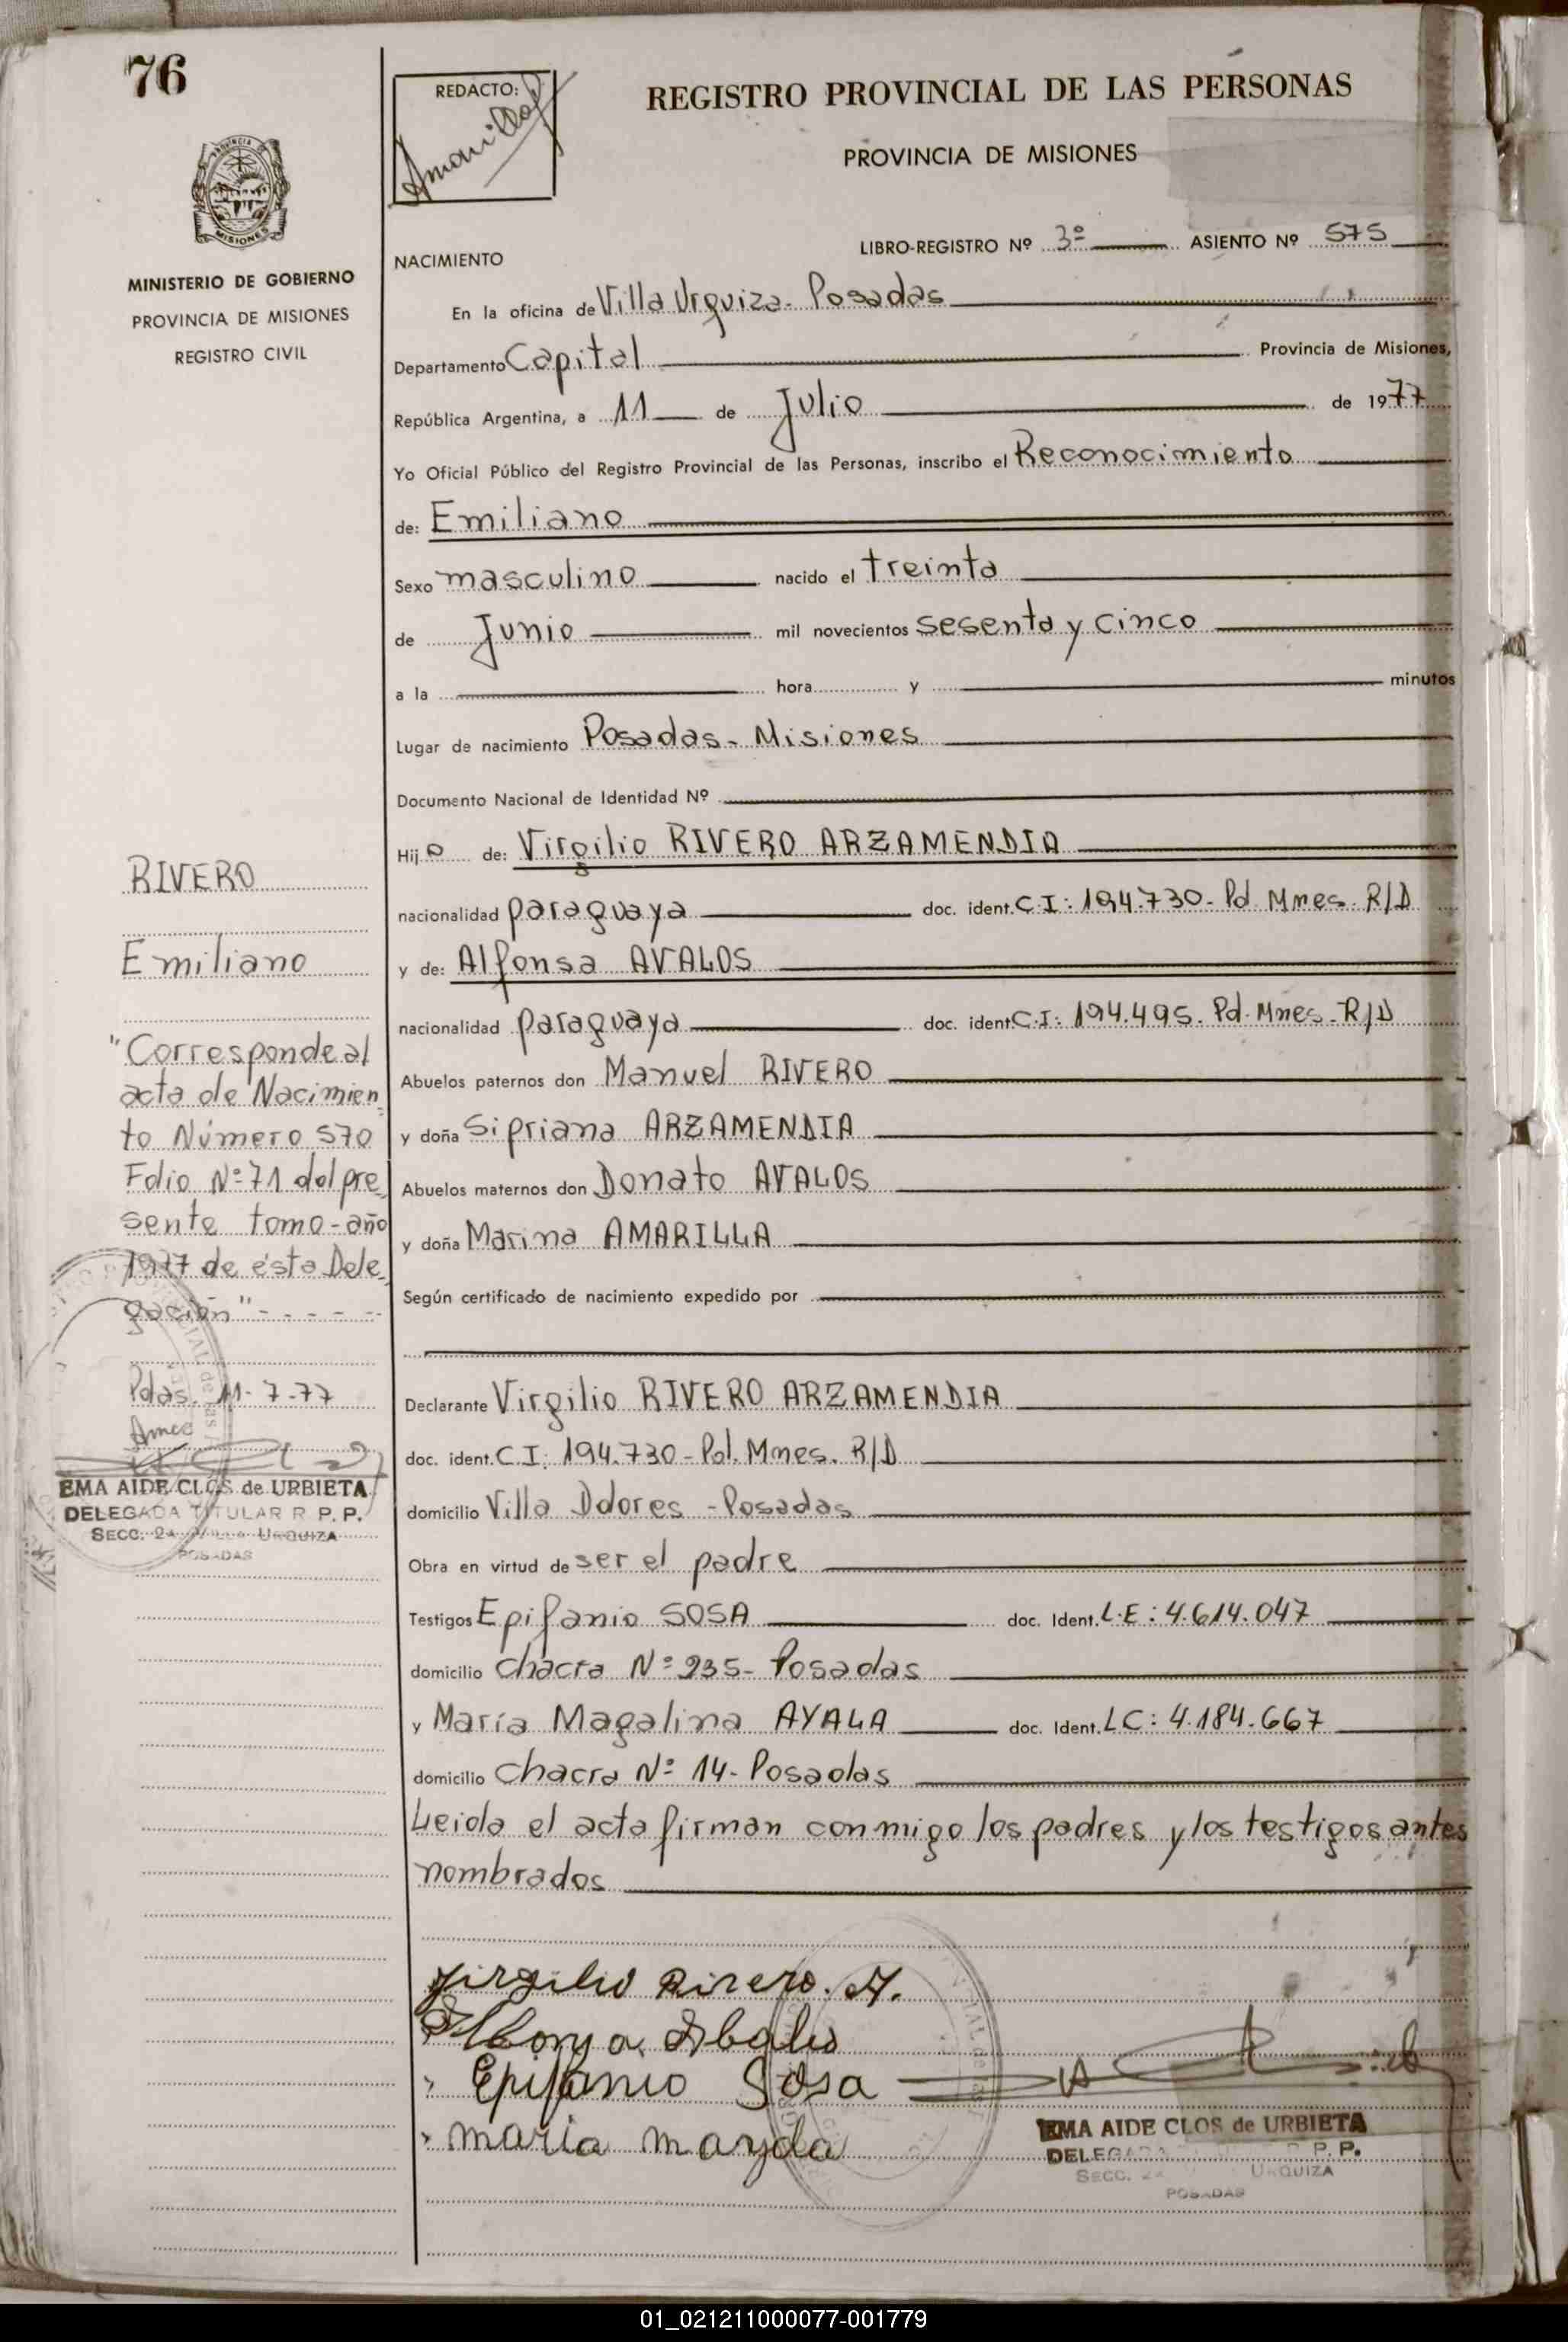 76
REDACTO:
REGISTRO PROVINCIAL DE LAS PERSONAS
PROVINCIA DE MISIONES
MINISTERIO DE GOBIERNO
PROVINCIA DE MISIONES
REGISTRO CIVIL
LIBRO-REGISTRO Nº 3º ASIENTO Nº 575
NACIMIENTO
En la oficina de Villa Urquiza - Posadas
Departamento Capital Provincia de Misiones,
República Argentina, a 11 de Julio de 1977
Yo Oficial Público del Registro Provincial de las Personas, inscribo el Reconocimiento
de: Emiliano
Sexo masculino nacido el treinta
de Junio mil novecientos sesenta y cinco
a la hora y minutos
Lugar de nacimiento Posadas - Misiones
Documento Nacional de Identidad Nº
Hij o de: Virgilio RIVERO ARZAMENDIA
nacionalidad paraguaya doc. ident. C.I: 194.730 - Pol. Mnes. R/D
y de: Alfonsa AVALOS
nacionalidad paraguaya doc. ident. C.I: 194.495. Pol. Mnes. R/D
Abuelos paternos don Manuel RIVERO
y doña Sipriana ARZAMENDIA
Abuelos maternos don Donato AVALOS
y doña Marina AMARILLA
Según certificado de nacimiento expedido por
Declarante Virgilio RIVERO ARZAMENDIA
doc. ident. C.I: 194.730 - Pol. Mnes. R/D
domicilio Villa Dolores - Posadas
Obra en virtud de ser el padre
Testigos Epifanio SOSA doc. Ident. L.E: 4.614.047
domicilio chacra Nº 235 - Posadas
y María Magalina AYALA doc. Ident. LC: 4.184.667
domicilio Chacra Nº 14 - Posadas
Leida el acta firman conmigo los padres y los testigos antes
nombrados
RIVERO
Emiliano
"Corresponde al
acta de Nacimien
to Número 570
Folio Nº 71 del pre
sente tomo - año
1977 de ésta Dele
gación" - - - - -
Pdas. 11-7-77
EMA AIDE CLOS de URBIETA
DELEGADA TITULAR R P. P.
SECC. 2a Villa URQUIZA
POSADAS
Virgilio Rivero. A.
Epifanio Sosa
maria mayda
EMA AIDE CLOS de URBIETA
DELEGADA P. P.
SECC. 2a URQUIZA
POSADAS
01_021211000077-001779